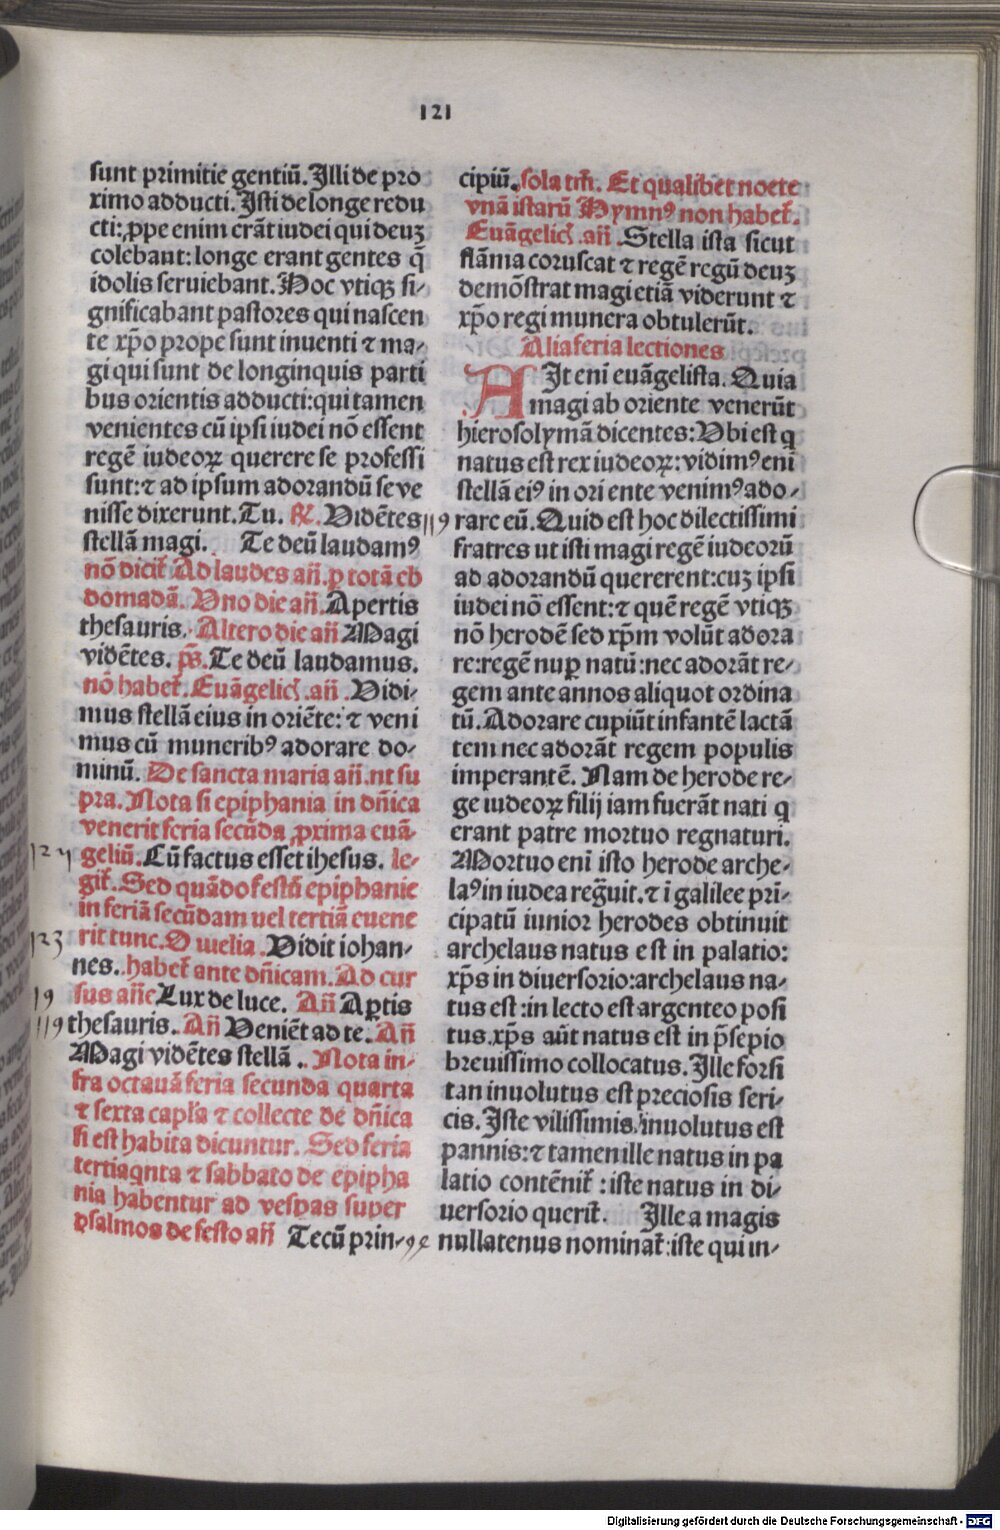 121
sunt primitie gentiū. Illi de pro
ximo adducti. Isti de longe redu
cti: ꝓpe enim erāt iudei qui deuꝫ
colebant: longe erant gentes q̄
idolis seruiebant. Hoc vtiqꝫ si⸗
gnificabant pastores qui nascen
te xp̄o prope sunt inuenti ⁊ ma⸗
gi qui sunt de longinquis parti
bus orientis adducti: qui tamen
venientes cū ipsi iudei nō essent
regē iudeoꝝ querere se professi
sunt: ⁊ ad ipsum adorandū se ve
nisse dixerunt. Tu. ℟. Vidētes 119
stellā magi. Te deū laudamꝰ
nō dicit̄ Ad laudes añ. ꝑ totā eb
domadā. Vno die añ. Apertis
thesauris. Altero die añ Magi
vidētes. p̄s. Te deū laudamus.
nō habet̄. Euāgelicḥ. añ. Vidi⸗
mus stellā eius in oriēte: ⁊ veni
mus cū muneribꝰ adorare do⸗
minū. De sancta maria añ. vt su
pra. Nota si epiphania in dñica
venerit feria secūda ꝓxima euā
121 geliū. Cū factus esset ihesus. le⸗
git̄. Sed quādo festū epiphanie
in feriā secūdam uel tertiā euene
123 rit tunc. Euuelia. Vidit iohan⸗
nes. habet̄ ante dñicam. Ad cur
19 sus añe Lux de luce. Añ Aꝑtis
119 thesauris. Añ Veniēt ad te. Añ
Magi vidētes stellā. Nota in⸗
fra octauā feria secunda quarta
⁊ sexta capl̄a ⁊ collecte de dñica
si est habita dicuntur. Sed feria
tertia qnta ⁊ sabbato de epipha
nia habentur ad vesꝑas super
psalmos de festo añ Tecū prin⸗ 99
cipiū. sola tm̄. Et qualibet nocte
vnā istarū Hymnꝰ non habet̄.
Euāgelicḥ. añ. Stella ista sicut
flāma coruscat ⁊ regē regū deuꝫ
demōstrat magi etiā viderunt ⁊
xp̄o regi munera obtulerūt.
Alia feria lectiones
AIt eni euāgelista. Quia
magi ab oriente venerūt
hierosolymā dicentes: Vbi est q
natus est rex iudeoꝝ: vidimꝰ eni
stellā eiꝰ in ori ente venimꝰ ado⸗
rare eū. Quid est hoc dilectissimi
fratres ut isti magi regē iudeorū
ad adorandū quererent: cuꝫ ipsi
iudei nō essent: ⁊ quē regē vtiqꝫ
nō herodē sed xp̄m volūt adora
re: regē nuꝑ natū: nec adorāt re⸗
gem ante annos aliquot ordina
tū. Adorare cupiūt infantē lactā
tem nec adorāt regem populis
imperantē. Nam de herode re⸗
ge iudeoꝝ filij iam fuerāt nati q
erant patre mortuo regnaturi.
Mortuo eni isto herode arche⸗
laꝰ in iudea reg̃uit. ⁊ ī galilee prī⸗
cipatū iunior herodes obtinuit
archelaus natus est in palatio:
xp̄s in diuersorio: archelaus na⸗
tus est: in lecto est argenteo posi
tus. xp̄s aūt natus est in p̄sepio
breuissimo collocatus. Ille forsi
tan inuolutus est preciosis seri⸗
cis. Iste vilissimis inuolutus est
pannis: ⁊ tamen ille natus in pa
latio contēnit̄: iste natus in di⸗
uersorio querit̄. Ille a magis
nullatenus nominat̄: iste qui in⸗
Digitalisierung gefördert durch die Deutsche Forschungsgemeinschaft - DFG